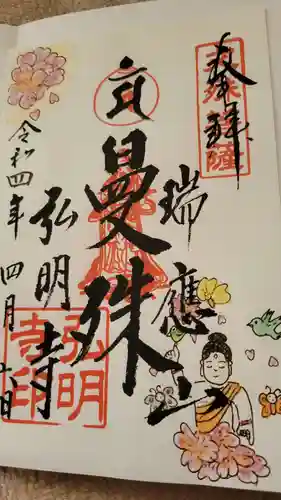 奉拝
瑞應山
曼殊
弘明寺
令和四年四月
弘明
寺印